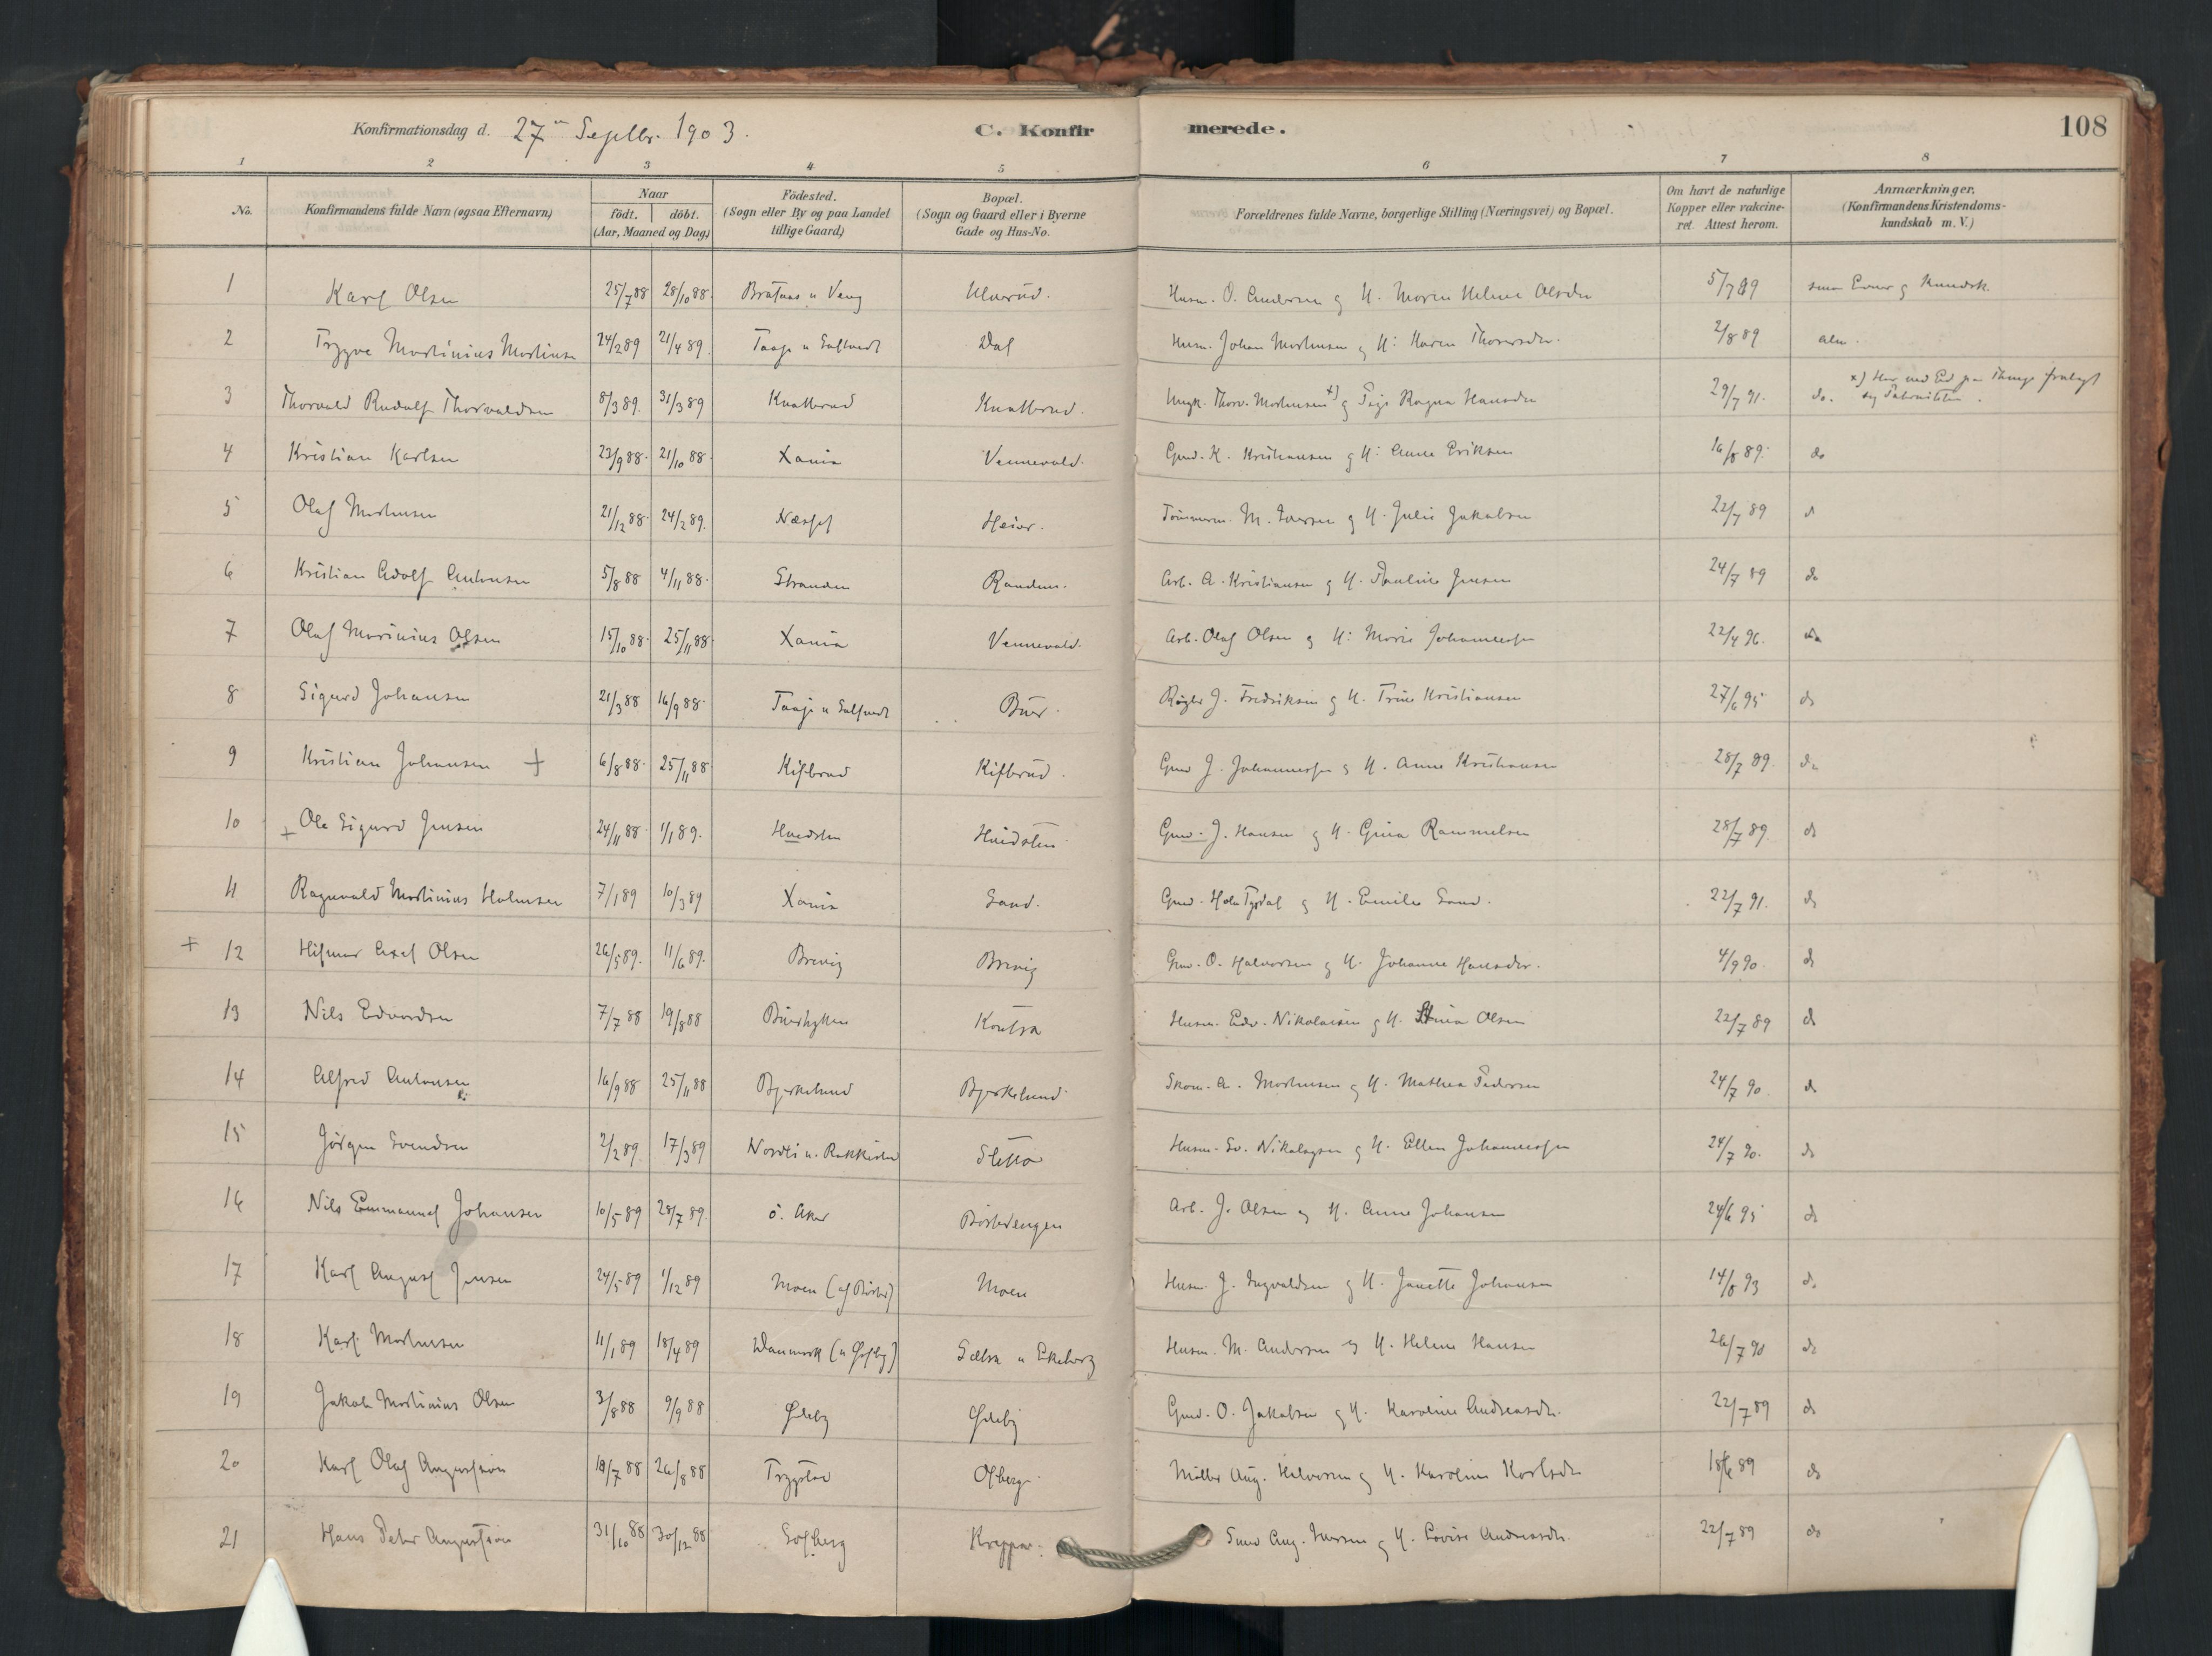 Konfirmationsdag d. 27de Septbr. 1903.
C. Konfirmerede.
108
1 2 3 4 5 6 7 8
No.
Konfirmandens fulde Navn (ogsaa Efternavn)
Naar
födt. döbt.
(Aar, Maaned og Dag)
Födested.
(Sogn eller By og paa Landet
tillige Gaard)
Bopæl.
(Sogn og Gaard eller i Byerne
Gade og Hus-No.
Forældrenes fulde Navne, borgerlige Stilling (Næringsvei) og Bopæl.
Om havt de naturlige
Kopper eller vakcine-
ret. Attest herom.
Anmærkninger.
(Konfirmandens Kristendoms-
kundskab m. V.)
1 Karl Olsen 25/7 88 28/10 88. Ulverud. Husm. O. Andersen og H. Maren Helene Olsdr 5/7 89
2 Trygve Martinius Martinsen 24/2 89 21/4 89. Dal Husm. Johan Martinsen og H: Karen 2/8 89 alm.
3 Thorvald Rudolf Thorvaldsen 8/3 89. 31/3 89 Knatterud Knatterud. Ungk. Thorv. Mortensen x) og Pige Ragna Hansdr 29/7 91. do. x) Har ved Ed paa Thinge fralagt sig Paterniteten.
4 Kristian Karlsen 23/9 88. 21/10 88. Xania Vennevold. Gmd. K. Kristiansen og H: Anne Eriksen 16/8 89. do
5 Olaf Martinsen 21/12 88. 24/2 89. Heier. Tömmerm. M. Iversen og H. Julie Jakobsen 22/7 89 d
6 Kristian Adolf Antonsen 5/8 88 4/11 88. Stranden Randem. Arb. A. Kristiansen og H. Pauline Jensen 24/7 89 do
7 Olaf Marinius Olsen 15/10 88. 25/11 88. Xania Vennevold. Arb. Olaf Olsen og H: Marie Johannessen 22/4 96. do
8 Sigurd Johansen 21/3 88 16/9 88. Buer. J. Fredriksen og H. Trine Kristiansen 27/6 95 do
9 Kristian Johansen + 6/8 88. 25/11 88 Kifbrud Kifbrud. Gmd J. Johannessen og H. Anne Kristiansen 28/7 89. do
10 + Ole Sigurd Jensen 24/11 88. 1/1 89. Hvidsten Hvidsten. Gmd. J. Hansen og H. Gina Rammelsen 28/7 89. do
11 Ragnvald Martinius Holmsen 7/1 89 10/3 89 Xania Sand. Gmd. og H. Emilie Sand. 22/7 91. do
+ 12 Hilmar Axel Olsen 26/5 89. 11/6 89. Brevig Brevig Gmd. O. Halvorsen og H. Johanne Hansdr. 4/9 90. do
13 Nils Edvardsen 7/7 88 19/8 88 Buerhytten Kontra Husm. Edv. Nikolaisen og H. Stina Olsen 22/7 89 do
14 Alfred Antonsen 16/9 88 25/11 88 Bjerkelund Bjerkelund. Skom. A. Martinsen og H. Mathea Pedersen 24/7 90 do
15 Jörgen Svendsen 2/2 89. 17/3 89 Sletta Husm. Sv. Nikolaysen og H. Ellen Johannessen 24/7 90. do
16 Nils Emmanuel Johansen 10/5 89 28/7 89. ö. Aker Börterengen Arb. J. Olsen og H. Anne Johansen 24/6 95 do
17 Karl August Jensen 24/5 89 1/12 89 Moen Moen Husm. J. Ingvaldsen og H. Janette Johansen 14/8 93 do
18 Karl Martinsen 11/1 89 18/4 89 Danmark Sæltra u Ekeberg Husm. M. Andersen og H. Helene Hansen 26/7 90 do
19 Jakob Martinius Olsen 3/8 88 9/9 88 Ødeby Ødeby Gmd. O. Jakobsen og H. Karoline Andreasdr. 22/7 89 do
20 Karl Olaf Augustson 18/7 88 26/8 88 Trygstad Ofberg Möller Aug. Halvorsen og H. Karoline Karlsdr 18/6 89 do
21 Hans Peter Augustson 31/10 88 30/12 88 Solberg Kreppa. Smed Aug. Iversen og H. Lovise Andreasdr. 22/7 89 do